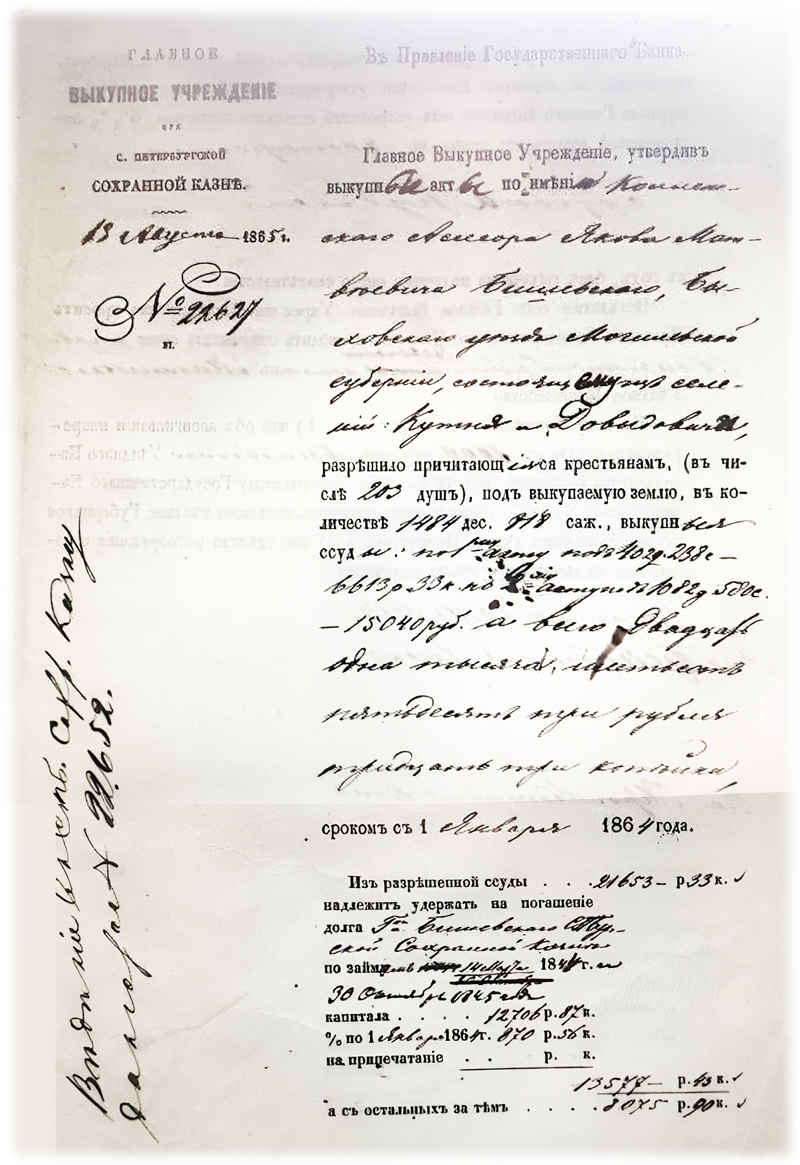 ГЛАВНОЕ
ВЫКУПНОЕ УЧРЕЖДЕНІЕ
ПРИ
С. ПЕТЕРБУРГСКОЙ
СОХРАННОЙ КАЗНѢ.
13 Августа 1865 г.
№ 22627
Въ Правленіе Государственнаго Банка.
Главное Выкупное Учрежденіе, утвердивъ
выкупные акты по имѣнію Коллеж-
скаго Асесора Якова Мат-
вѣевича Бишевскаго, Бы-
ховскаго уѣзда Могилевской
губерніи, состоящему изъ селе-
ній: Кутня и Довыдовичи,
разрѣшило причитающіяся крестьянамъ, (въ чи-
слѣ 203 душъ), подъ выкупаемую землю, въ ко-
личествѣ 1484 дес. 818 саж., выкупныя
ссуды: по 1му акту подъ 402д. 238с –
6613р 33к. по 2му акту подъ 1082д 580с.
– 15040 руб. а всего Двадцать
одна тысяча, шестьсотъ
пятьдесятъ три рубля
тридцать три копѣйки,
срокомъ съ 1 Января 1864 года.
Изъ разрѣшенной ссуды . . . 21653 – р. 33 к.
надлежитъ удержать на погашеніе
долга Гна Бишевскаго СПбур-
ской Сохранной Казнѣ
по займамъ 14 Марта 1844 г. и
30 Октября 1845 года
капитала . . . . 12706 р. 87 к.
% по 1 Января 1864 г. 870 р. 56 к.
на припечатаніе . . р. к.
13577 – р. 43 к.
а съ остальныхъ за тѣмъ . . . . 8075 р. 90 к.
Сохр. Казну
№ 22652.